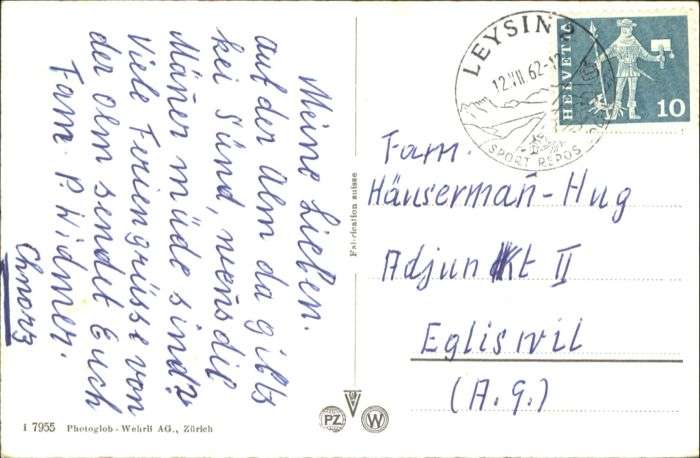 Meine Lieben.
auf der Alm da gibts
kei Sünd, wen̄s die
Mäner müde sind?
Viele Feriengrüsse von
der Alm sendet Euch
Fam. P. Widmer.
LEYSIN
12.VII.62-12
SPORT REPOS
HELVETIA
10
Fam.
Häuserman-Hug
Adjunkt II
Egliswil
(A.G.)
Fabrication suisse
i 7955 Photoglob-Wehrli AG., Zürich
PZ
W